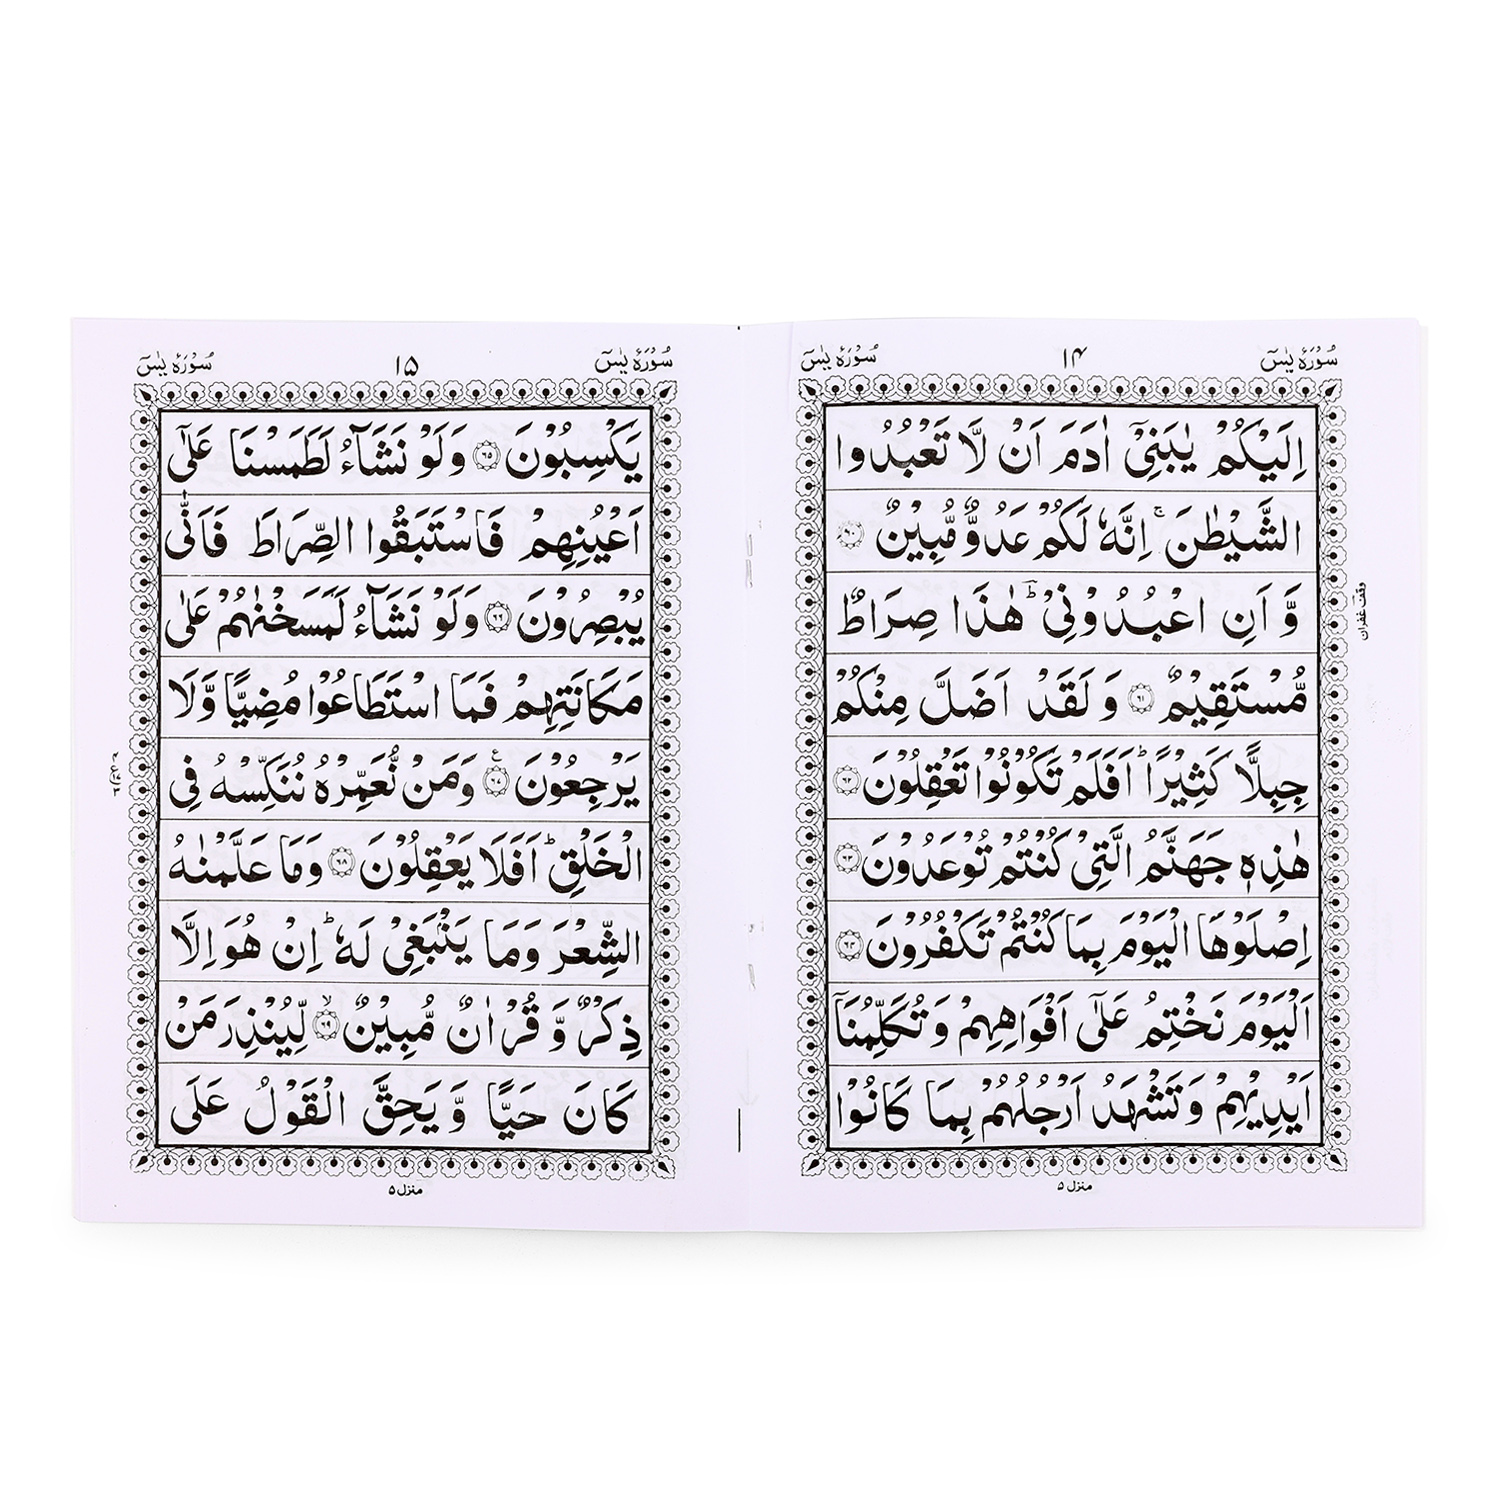 سُوْرَۃُ یٰسٓ
۱۴
سُوْرَۃُ یٰسٓ
اِلَيْكُمْ يٰبَنِيْۤ اٰدَمَ اَنْ لَّا تَعْبُدُوا
الشَّيْطٰنَ ۚ اِنَّهٗ لَكُمْ عَدُوٌّ مُّبِيْنٌ ۙ﴿۶۰﴾
وَّ اَنِ اعْبُدُوْنِيْ ؔؕ هٰذَا صِرَاطٌ
مُّسْتَقِيْمٌ ﴿۶۱﴾ وَ لَقَدْ اَضَلَّ مِنْكُمْ
جِبِلًّا كَثِيْرًا ؕ اَفَلَمْ تَكُوْنُوْا تَعْقِلُوْنَ ﴿۶۲﴾
هٰذِهٖ جَهَنَّمُ الَّتِيْ كُنْتُمْ تُوْعَدُوْنَ ﴿۶۳﴾
اِصْلَوْهَا الْيَوْمَ بِمَا كُنْتُمْ تَكْفُرُوْنَ ﴿۶۴﴾
اَلْيَوْمَ نَخْتِمُ عَلٰۤى اَفْوَاهِهِمْ وَ تُكَلِّمُنَاۤ
اَيْدِيْهِمْ وَ تَشْهَدُ اَرْجُلُهُمْ بِمَا كَانُوْا
منزل ۵
وقف غفران
سُوْرَۃُ یٰسٓ
۱۵
سُوْرَۃُ یٰسٓ
يَكْسِبُوْنَ ﴿۶۵﴾ وَلَوْ نَشَآءُ لَطَمَسْنَا عَلٰۤى
اَعْيُنِهِمْ فَاسْتَبَقُوا الصِّرَاطَ فَاَنّٰى
يُبْصِرُوْنَ ﴿۶۶﴾ وَلَوْ نَشَآءُ لَمَسَخْنٰهُمْ عَلٰى
مَكَانَتِهِمْ فَمَا اسْتَطَاعُوْا مُضِيًّا وَّلَا
يَرْجِعُوْنَ ﴿۶۷﴾ وَمَنْ نُّعَمِّرْهُ نُنَكِّسْهُ فِي
الْخَلْقِ ؕ اَفَلَا يَعْقِلُوْنَ ﴿۶۸﴾ وَمَا عَلَّمْنٰهُ
الشِّعْرَ وَمَا يَنْۢبَغِيْ لَهٗ ؕ اِنْ هُوَ اِلَّا
ذِكْرٌ وَّ قُرْاٰنٌ مُّبِيْنٌ ۙ﴿۶۹﴾ لِّيُنْذِرَ مَنْ
كَانَ حَيًّا وَّ يَحِقَّ الْقَوْلُ عَلَى
منزل ۵